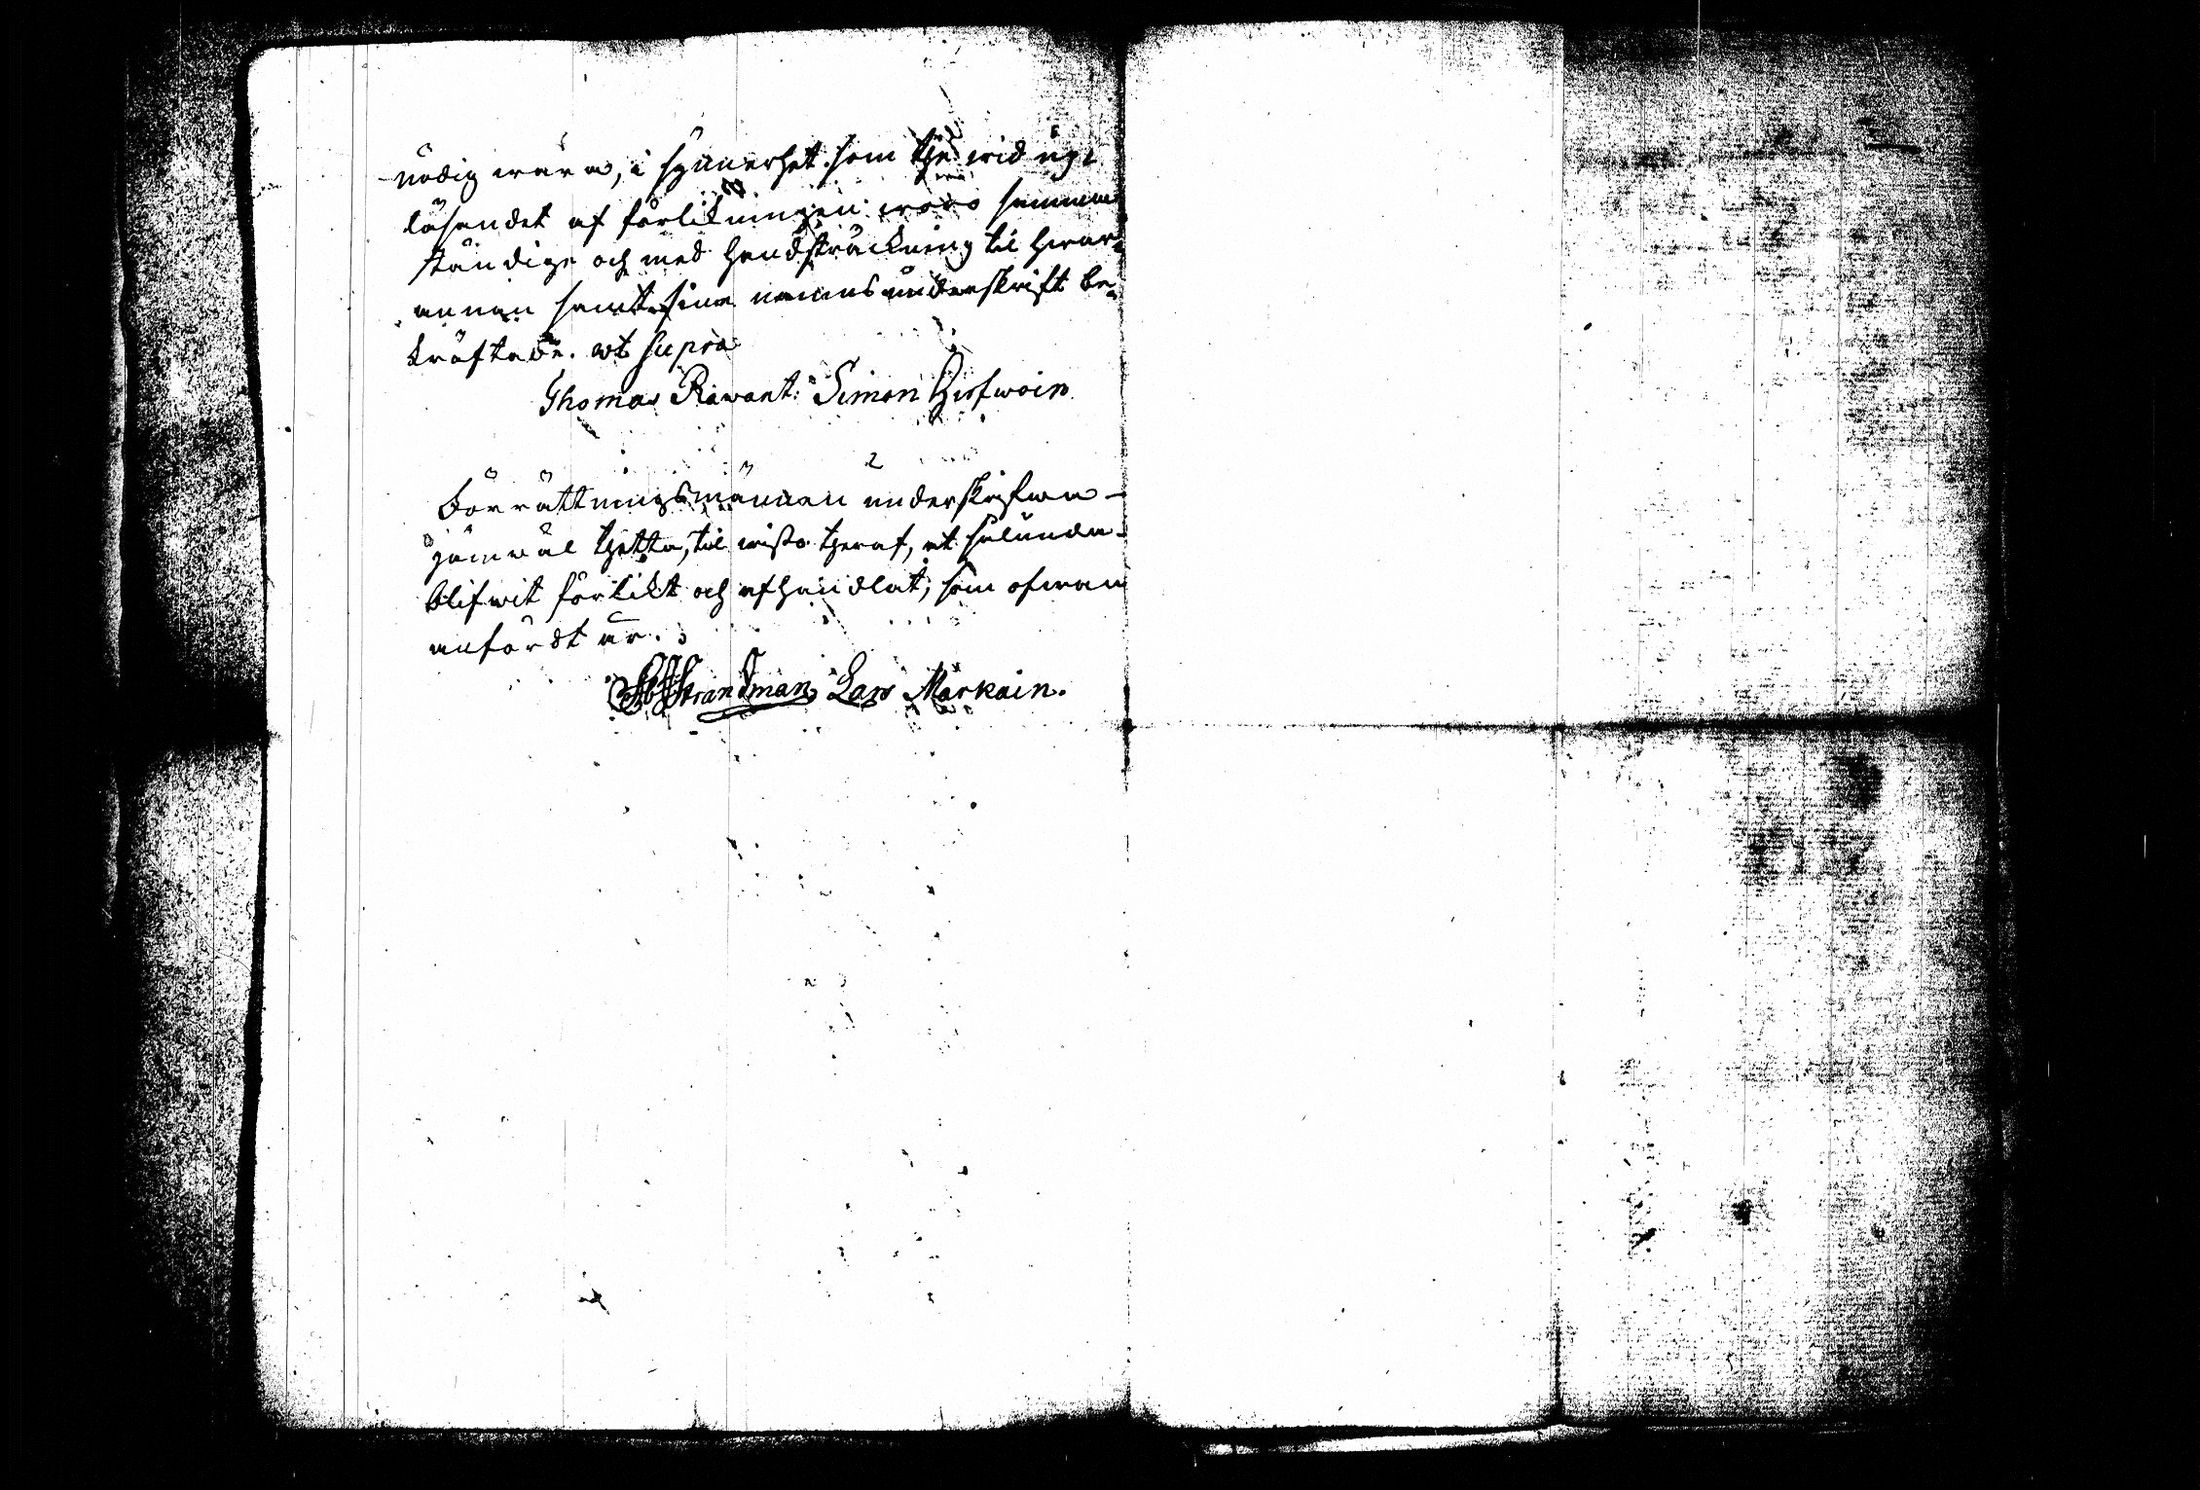 nödig wara, i synnerhet som the wid upp
läsandet af förlikningen woro samman
ständige och med handsträckning til hwar
annan samt sina namns underskrift be-
kräftade. ut supra
Thomas Rawant. Simon Hirfwoin
Förrättningsmännen underskrifwa
jämwäl thetta, til wisso theraf, at sålunda
blifwit förlikt och afhandlat, som ofwan
anfördt är.
Strandman Lars Markain.